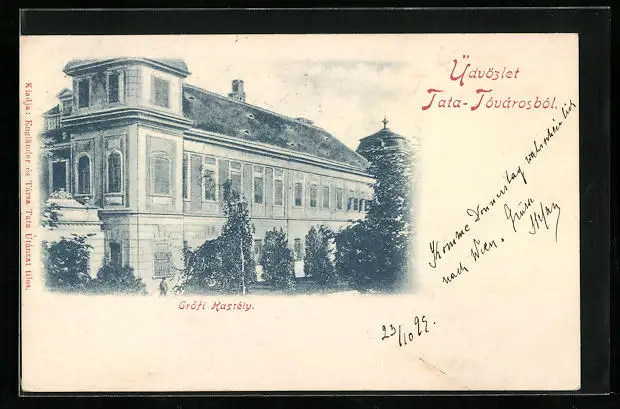 Üdvözlet
Tata-Tóvárosból.
Kiadja: Engländer és Társa Tata Utánzat tilos.
Komme Donnerstag wahrscheinlich
nach Wien. Gruss
Stefan
Grófi Kastély.
23/10 99.